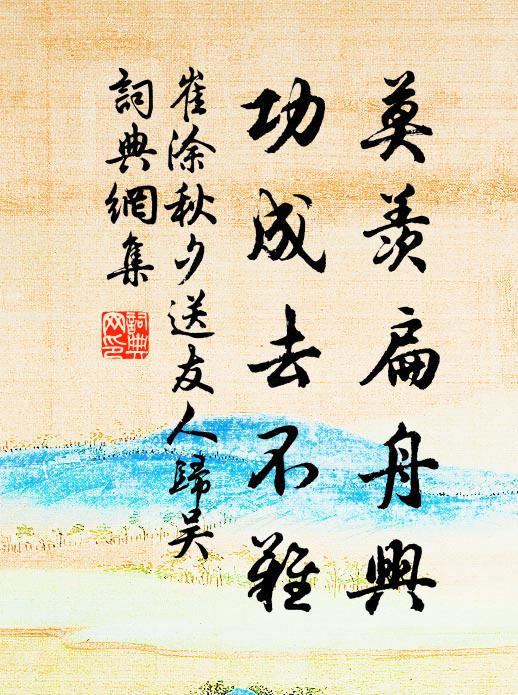 莫羨扁舟興
功成去不難
崔涂秋夕送友人歸吴
詞典網集
詞典网印